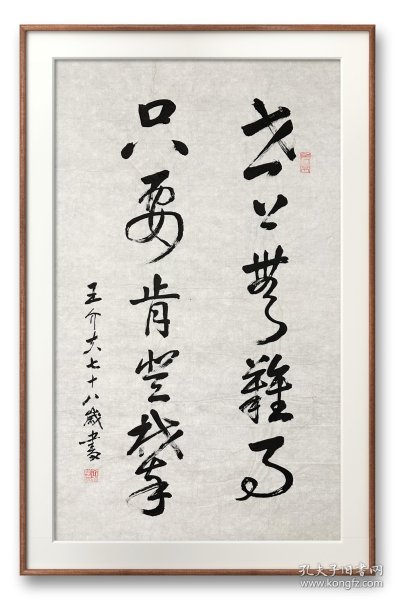 世上無難事
只要肯登攀
王介六七十八歲書
孔夫子旧书网
www.kongfz.com